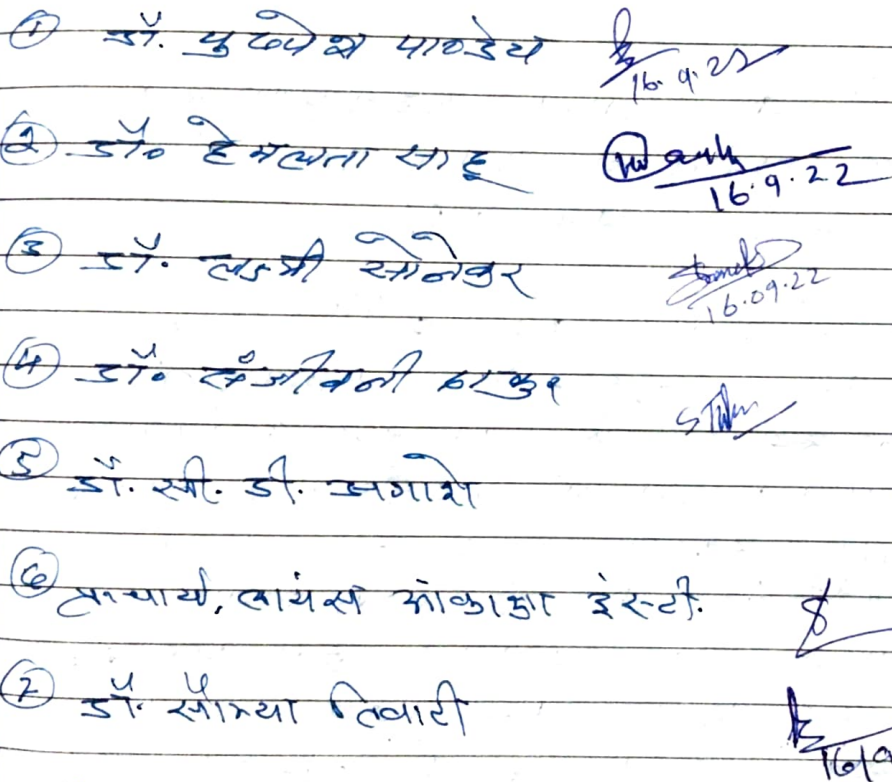 ① डॉ. पुष्पेश पाण्डेय
16.9.22
② डॉ० हेमलता साहू
16.9.22
③ डॉ. लक्ष्मी सोनेकर
16.09.22
④ डॉ० संजीवनी ठाकुर
⑤ डॉ. सी. डी. अगाशे
⑥ प्राचार्य, लायंस ओकाझा इंस्टी.
⑦ डॉ. सौम्या तिवारी